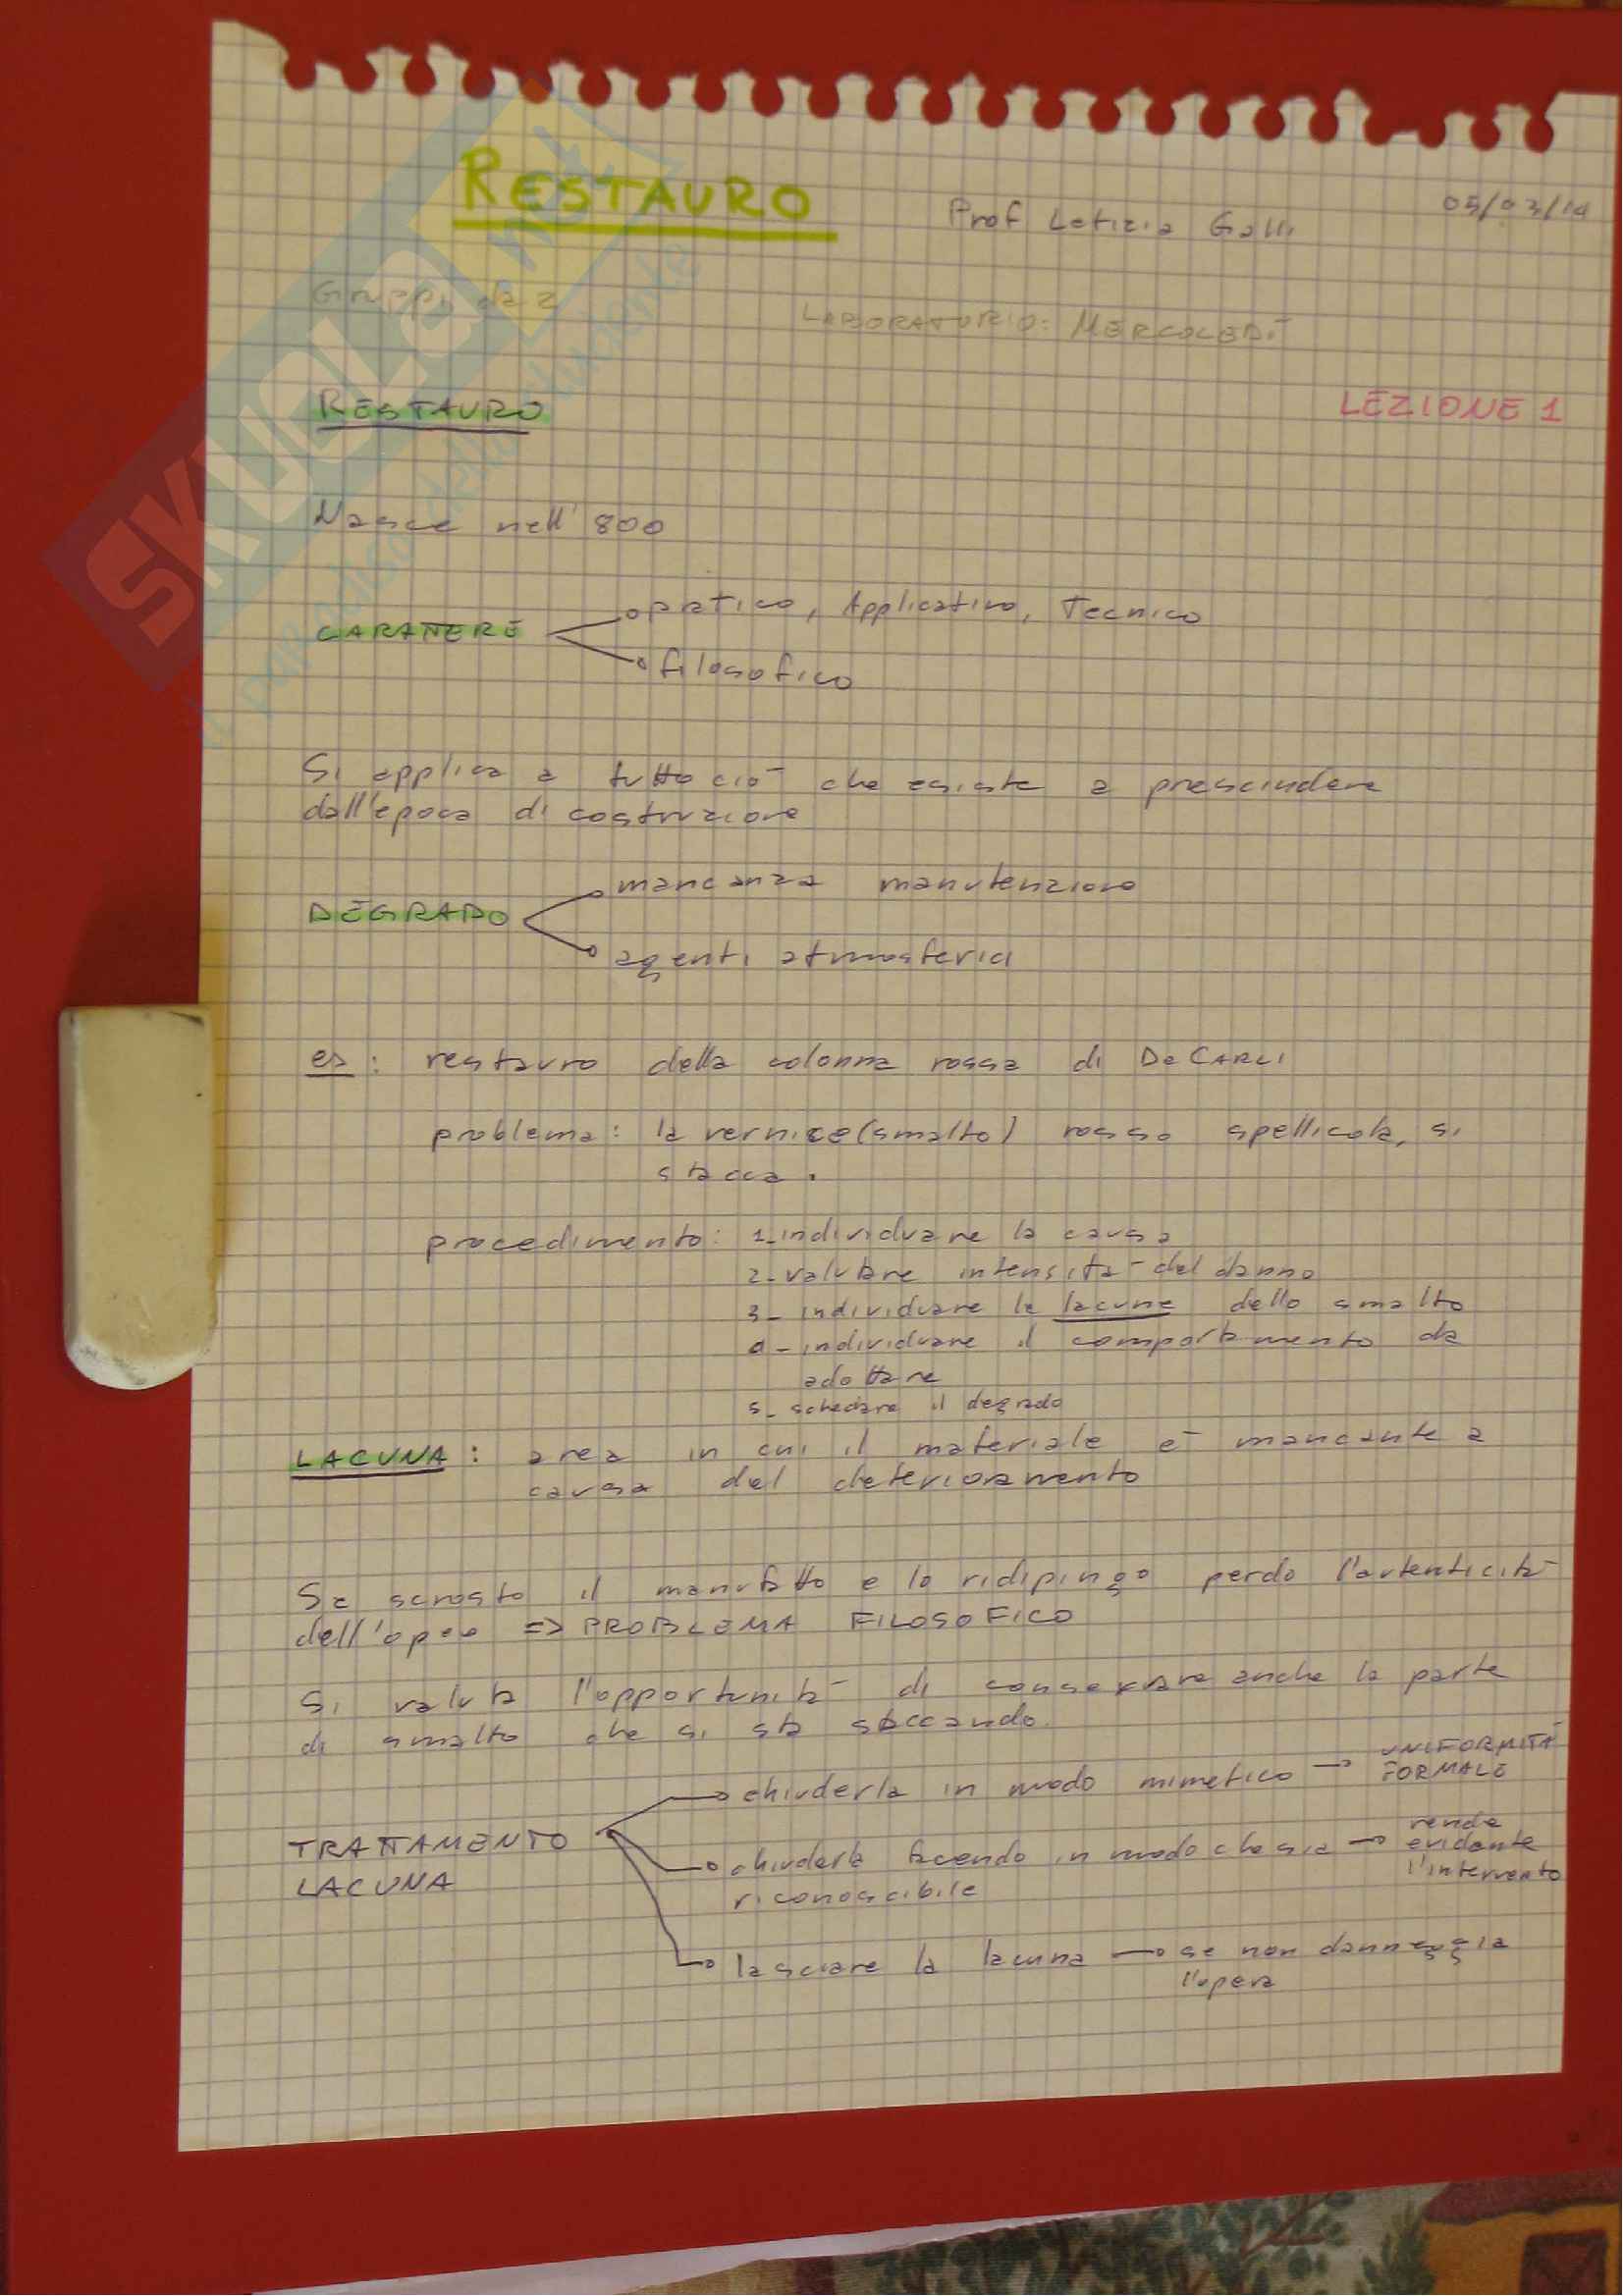 RESTAURO
Prof Letizia Galli
05/03/14
Gruppi da 2
LABORATORIO: MERCOLEDÌ
RESTAURO
LEZIONE 1
Nasce nell'800
CARATTERE
pratico, Applicativo, Tecnico
filosofico
Si applica a tutto ciò che esiste a prescindere
dall'epoca di costruzione
DEGRADO
mancanza manutenzione
agenti atmosferici
es: restauro della colonna rossa di De CARLI
problema: la vernice (smalto) rosso spellicola, si
stacca.
procedimento: 1- individuare la causa
2- valutare intensità del danno
3- individuare le lacune dello smalto
4- individuare il comportamento da
adottare
5- schedare il degrado
LACUNA: area in cui il materiale è mancante a
causa del deterioramento
Se scrosto il manufatto e lo ridipingo perdo l'autenticità
dell'opera => PROBLEMA FILOSOFICO
Si valuta l'opportunità di conservare anche la parte
di smalto che si sta staccando.
TRATTAMENTO
LACUNA
chiuderla in modo mimetico → UNIFORMITÀ
FORMALE
chiuderla facendo in modo che sia
riconoscibile
→ rende
evidente
l'intervento
lasciare la lacuna → se non danneggia
l'opera
SKUOLA.net
il paradiso dello studente